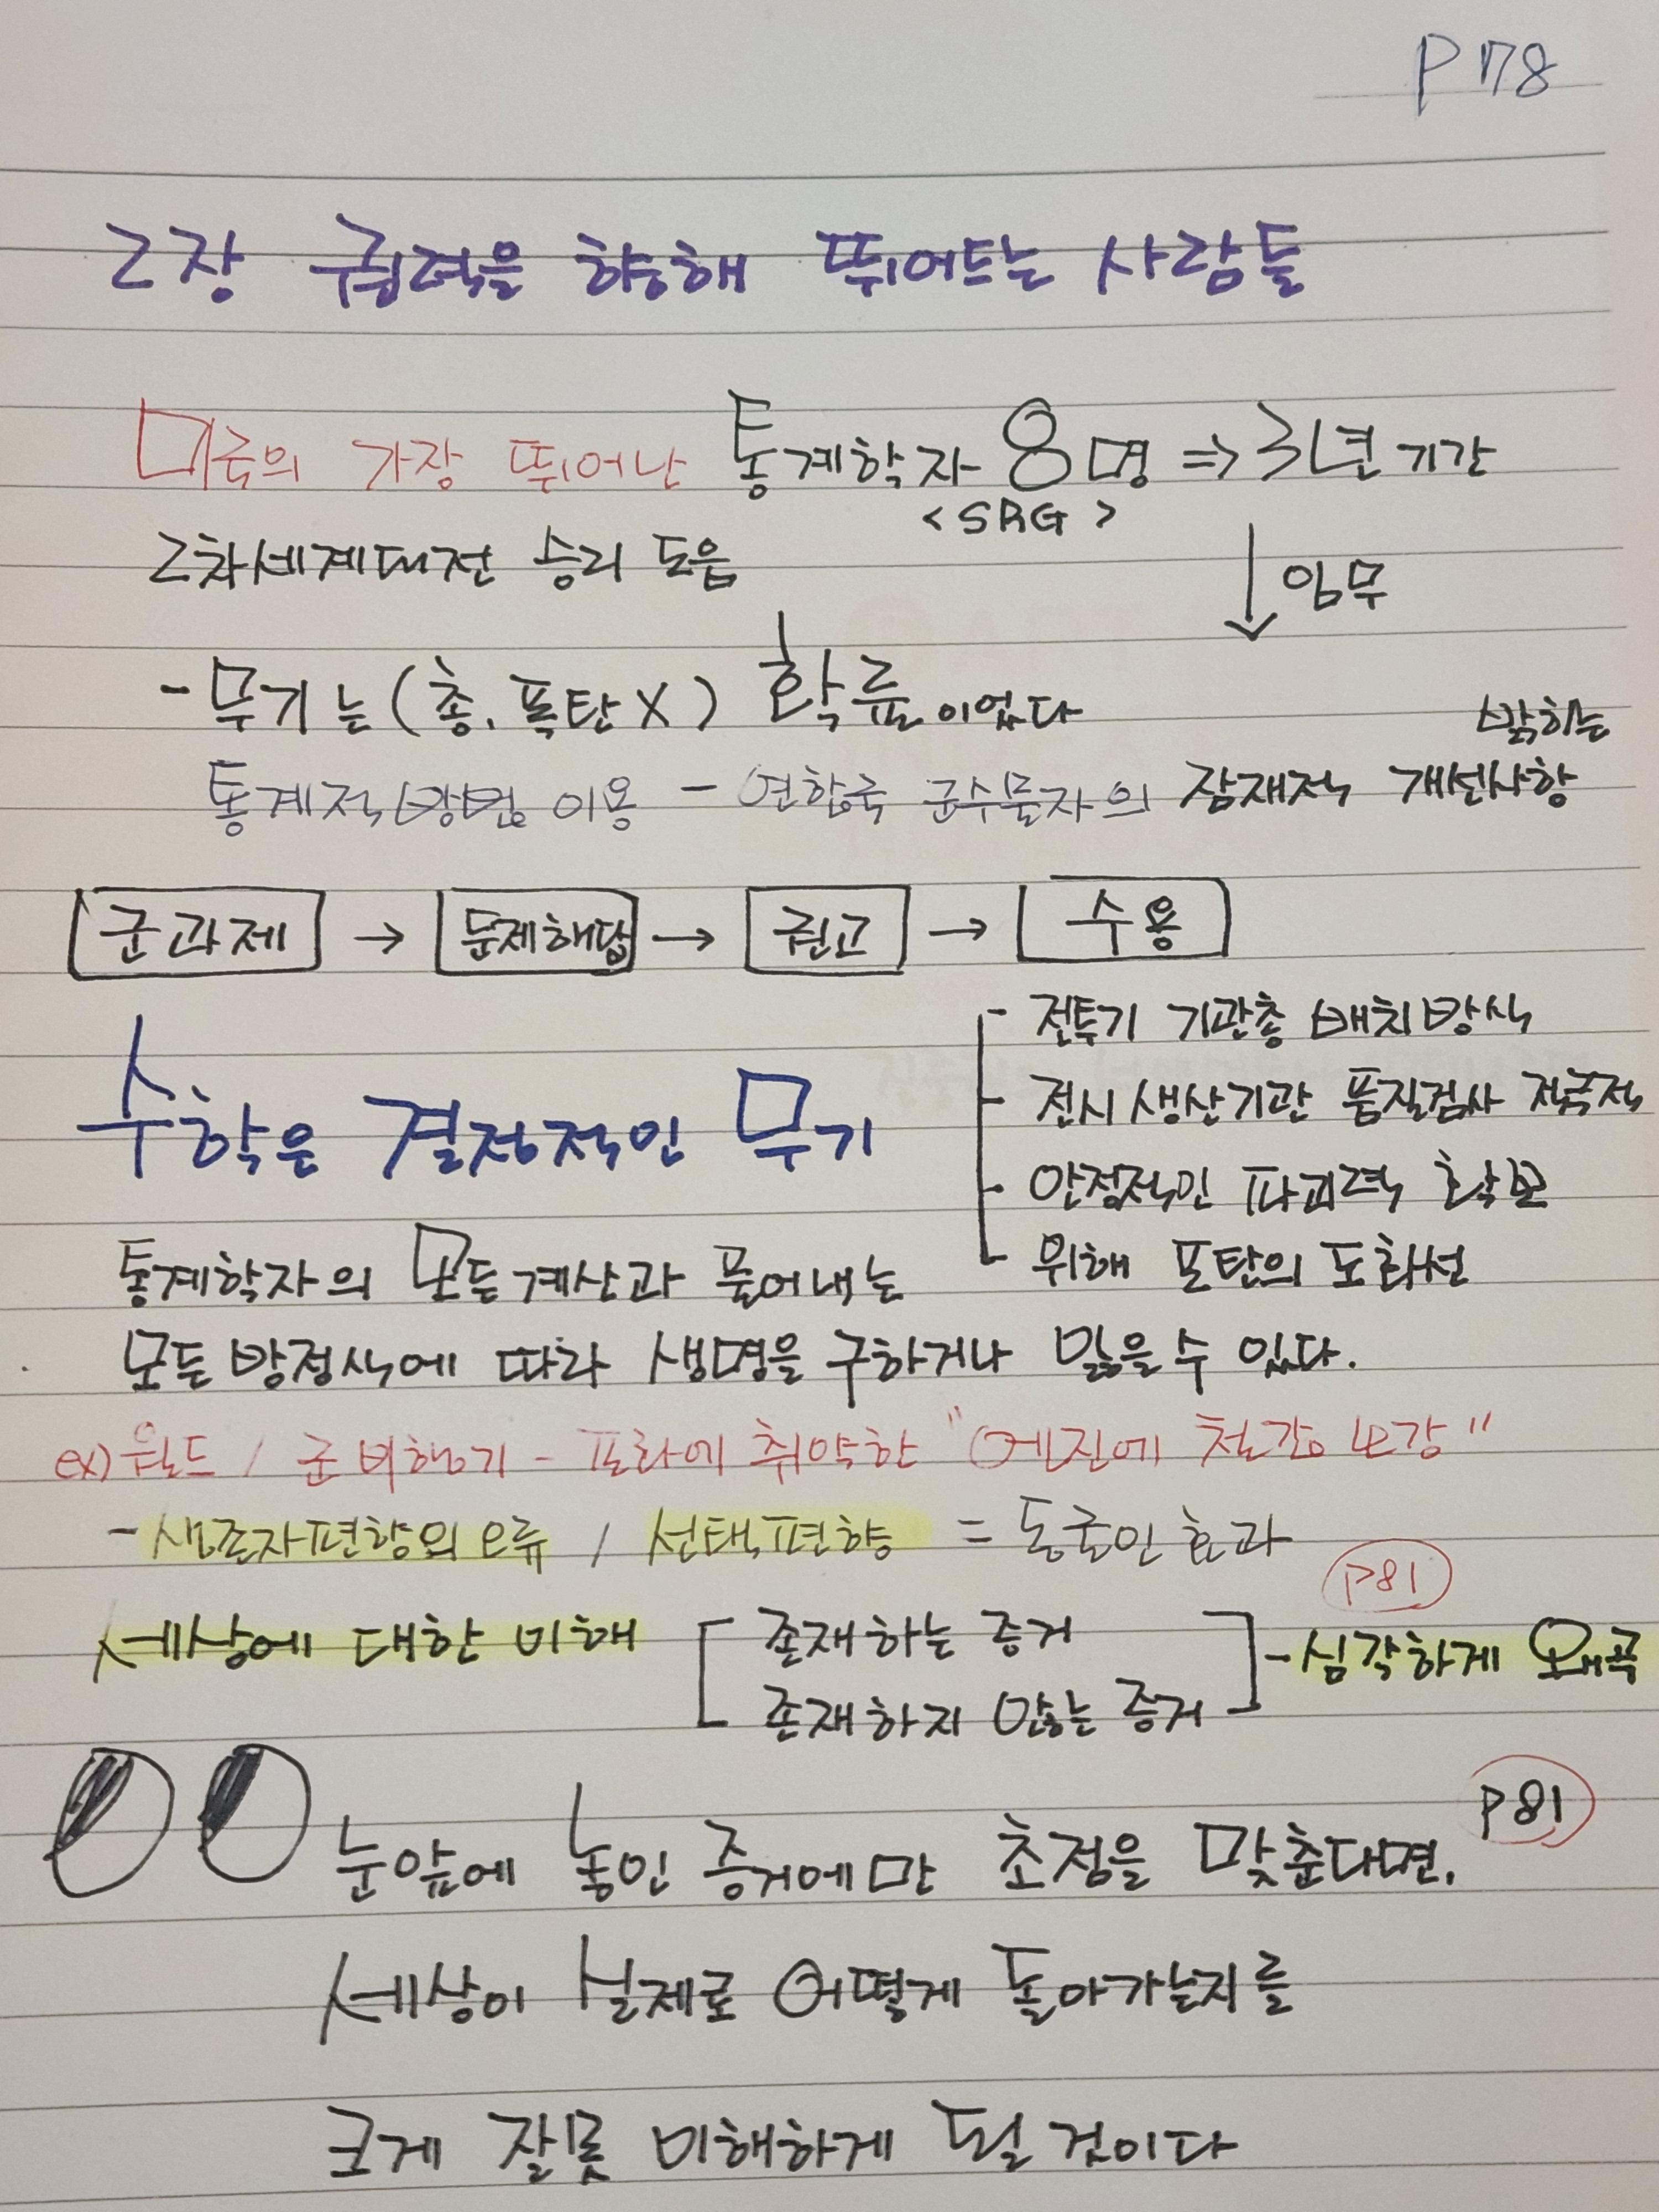 P 78
2장 권력을 향해 뛰어드는 사람들
미국의 가장 뛰어난 통계학자 8명 => 3년 기간
<SRG>
2차세계대전 승리 도움
↓ 임무
- 무기는 (총, 폭탄 X) 확률이었다
밝히는
통계적 방법 이용 - 연합국 군수물자의 잠재적 개선사항
군과제 → 문제해답 → 권고 → 수용
- 전투기 기관총 배치방식
수학은 결정적인 무기
- 전시 생산기관 품질검사 적극적
- 안정적인 파괴력 확보
위해 포탄의 도화선
통계학자의 모든 계산과 풀어내는
모든 방정식에 따라 생명을 구하거나 잃을 수 있다.
ex) 월드 / 군 비행기 - 포화에 취약한 "엔진에 철갑 보강"
- 생존자편향의 오류 / 선택편향 = 동굴인 효과
P81
세상에 대한 이해 [ 존재하는 증거 ] - 심각하게 왜곡
존재하지 않는 증거
P81
눈앞에 놓인 증거에만 초점을 맞춘다면,
세상이 실제로 어떻게 돌아가는지를
크게 잘못 이해하게 될 것이다